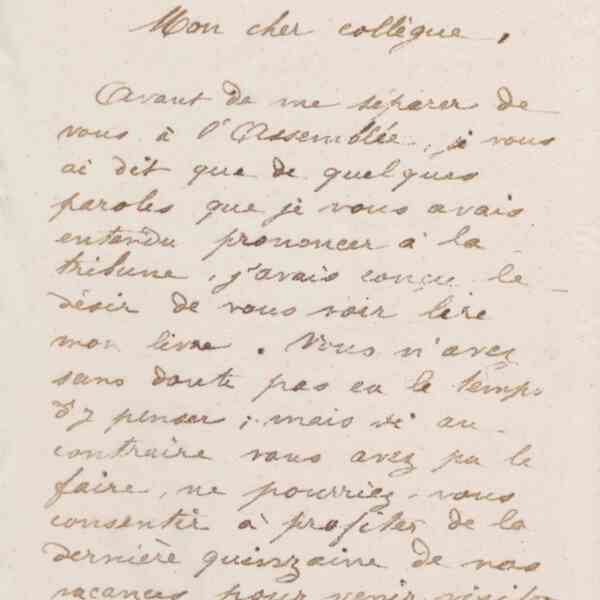 Mon cher collègue,
Avant de me séparer de
vous à l'Assemblée, je vous
ai dit que de quelques
paroles que je vous avais
entendu prononcer à la
tribune, j'avais conçu le
désir de vous voir lire
mon livre. Vous n'avez
sans doute pas eu le temps
d'y penser; mais si au
contraire vous avez pu le
faire, ne pourriez-vous
consentir à profiter de la
dernière quinzaine de nos
vacances pour venir visiter